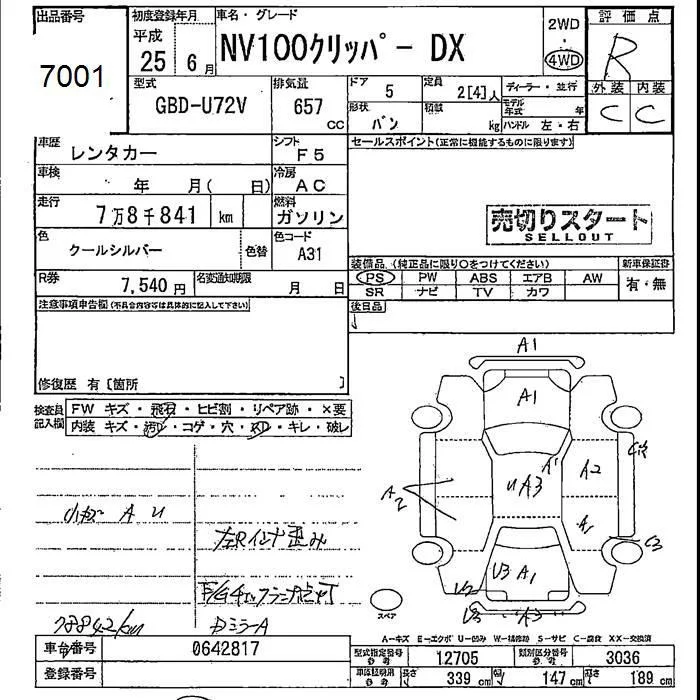 出品番号
7001
初度登録年月
平成
25年 6月
車名・グレード
NV100クリッパー DX
2WD
・
4WD
評価点
R
外装 内装
C C
型式
GBD-U72V
排気量
657
CC
ドア
5
定員
2[4]人
ディーラー・並行
形状
バン
積載
kg
モデル年式 年
ハンドル 左・右
車歴
レンタカー
シフト
F5
セールスポイント(正常に機能するものに限ります)
車検
年 月( 日)
冷房
AC
走行
7万8千841 km
燃料
ガソリン
売切りスタート
SELLOUT
色
クールシルバー
色替
色コード
A31
装備品 (純正品に限り○をつけてください)
新車保証書
PS PW ABS エアB AW
有・無
SR ナビ TV カワ
R券
7,540円
名変通知期限
月 日
後日品
注意事項申告欄(不具合内容等は具体的に記入して下さい)
修復歴 有〔箇所 〕
検査員記入欄
FW キズ・飛石・ヒビ割・リペア跡・×要
内装 キズ・汚れ・コゲ・穴・スレ・キレ・破レ
A1
A1
A1
A2
A2
UA3
A1
C3
U3 A1
小キズ A U
左Rインナー歪み
78842km
DミラーA
スペア
A-キズ E-エクボ U-凹み W-補修跡 S-サビ C-腐食 XX-交換済
車台番号
0642817
型式指定番号
参考
12705
類別区分番号
参考
3036
登録番号
車体証明用
参考
長さ 339 cm 幅 147 cm 高さ 189 cm